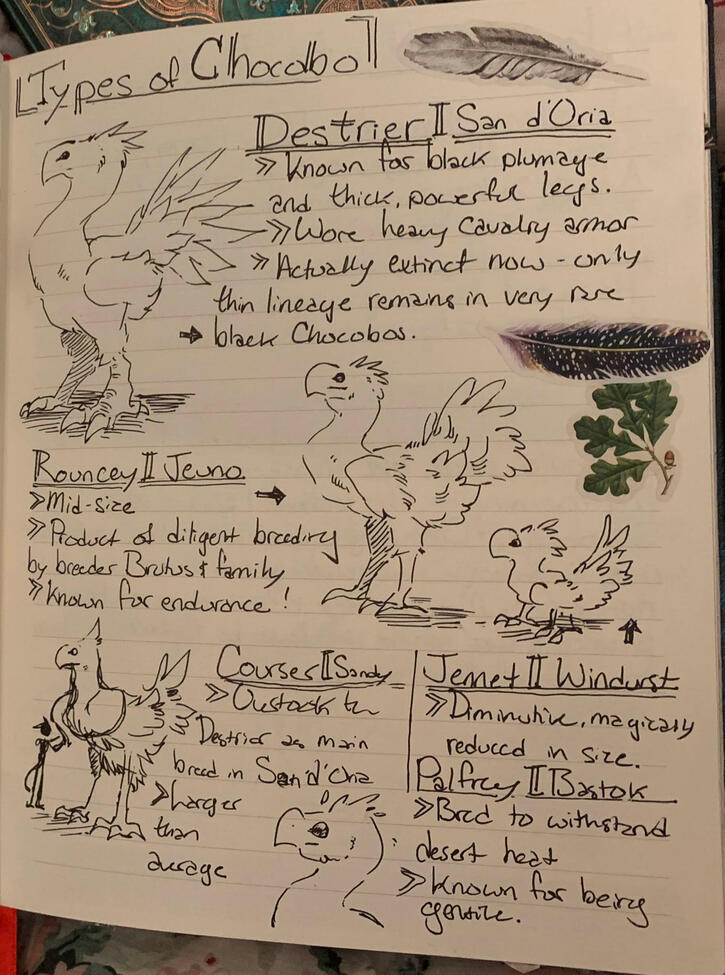 Types of Chocobo
Destrier II San d'Oria
» Known for black plumage
and thick, powerful legs.
» Wore heavy cavalry armor
» Actually extinct now - only
thin lineage remains in very rare
black Chocobos.
Rouncey II Jeuno
» Mid-size
» Product of diligent breeding
by breeder Brutus & family
» Known for endurance!
Courser II Sandy
» Oustook the
Destrier as main
breed in San d'Oria
» Larger
than
average
Jennet II Windurst
» Diminutive, magically
reduced in size.
Palfrey II Bastok
» Bred to withstand
desert heat
» Known for being
gentle.